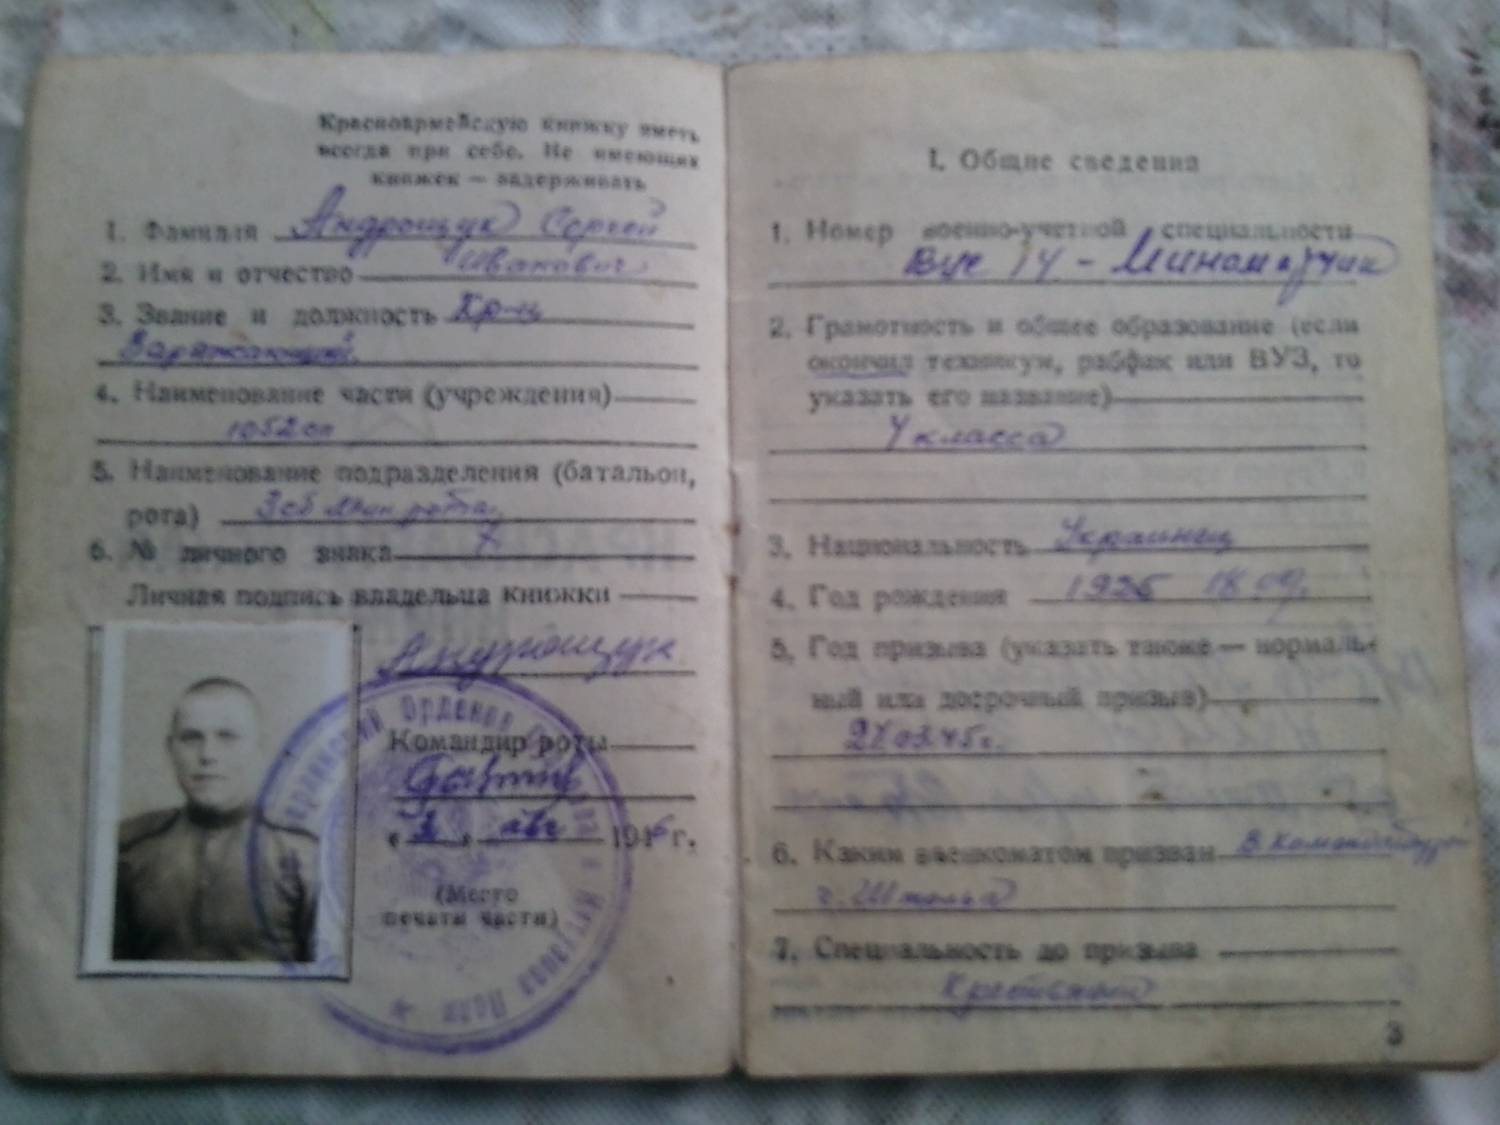 Красноармейскую книжку иметь
всегда при себе. Не имеющих
книжек — задерживать
1. Фамилия Андрощук Сергей
2. Имя и отчество Иванович
3. Звание и должность Кр-ц
Заряжающий
4. Наименование части (учреждения)
1052 сп
5. Наименование подразделения (батальон,
рота) 3сб мин рота
6. № личного знака
Личная подпись владельца книжки
Андрощук
Командир роты
" " авг 1946 г.
(Место
печати части)
Орденов Кутузова Полк
I. Общие сведения
1. Номер военно-учетной специальности
Вус 14 - Минометчик
2. Грамотность и общее образование (если
окончил техникум, рабфак или ВУЗ, то
указать его название)
4 класса
3. Национальность Украинец
4. Год рождения 1925 18 09
5. Год призыва (указать также — нормаль-
ный или досрочный призыв)
27 03 45 г.
6. Каким военкоматом призван
г. Штольп
7. Специальность до призыва
3